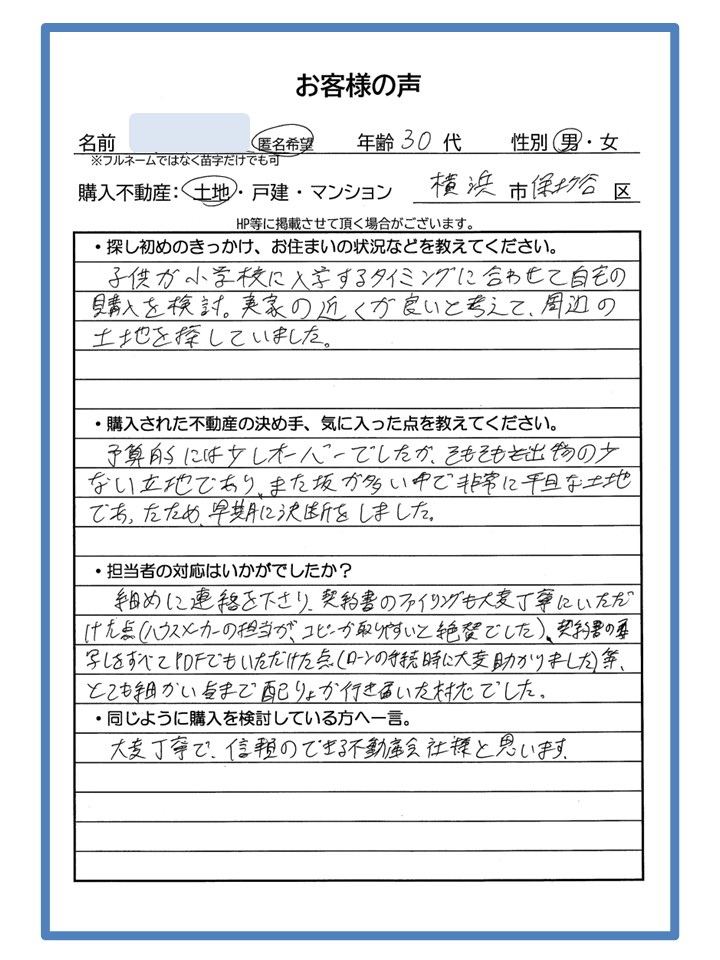 お客様の声
名前 匿名希望 年齢 30 代 性別 男・女
※フルネームではなく苗字だけでも可
購入不動産：土地・戸建・マンション 横浜 市 保土ケ谷 区
HP等に掲載させて頂く場合がございます。
・探し初めのきっかけ、お住まいの状況などを教えてください。
子供が小学校に入学するタイミングに合わせて自宅の
購入を検討。実家の近くが良いと考えて、周辺の
土地を探していました。
・購入された不動産の決め手、気に入った点を教えてください。
予算的には少しオーバーでしたが、そもそも出物の少
ない立地であり、また坂が多い中で非常に平坦な土地
であったため、早期に決断をしました。
・担当者の対応はいかがでしたか？
細めに連絡を下さり、契約書のファイリングも大変丁寧にいただ
けた点(ハウスメーカーの担当が、コピーが取りやすいと絶賛でした)、契約書の
写しをすべてPDFでもいただけた点(ローンの手続時に大変助かりました)等、
とても細かい点まで配りょが行き届いた対応でした。
・同じように購入を検討している方へ一言。
大変丁寧で、信頼のできる不動産会社様と思います。